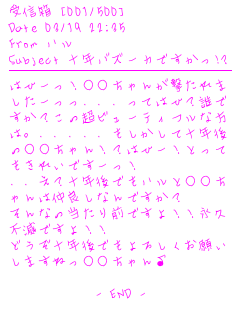 受信箱 [001/500]
Date 08/19 22:35
From ハル
Subject 十年バズーカですかっ!?
はひーっ!〇〇ちゃんが撃たれま
したーっっ...ってはひ?誰で
すか?この超ビューティフルな方
は。.....もしかして十年後
の〇〇ちゃん!?はひー!とって
もきれいですーっ!
..えっ十年後でもハルと〇〇ち
ゃんは仲良しなんですか?
そんなの当たり前ですよ!!永久
不滅ですよ!!
どうぞ十年後でもよろしくお願い
しますねっ〇〇ちゃん♪
- END -